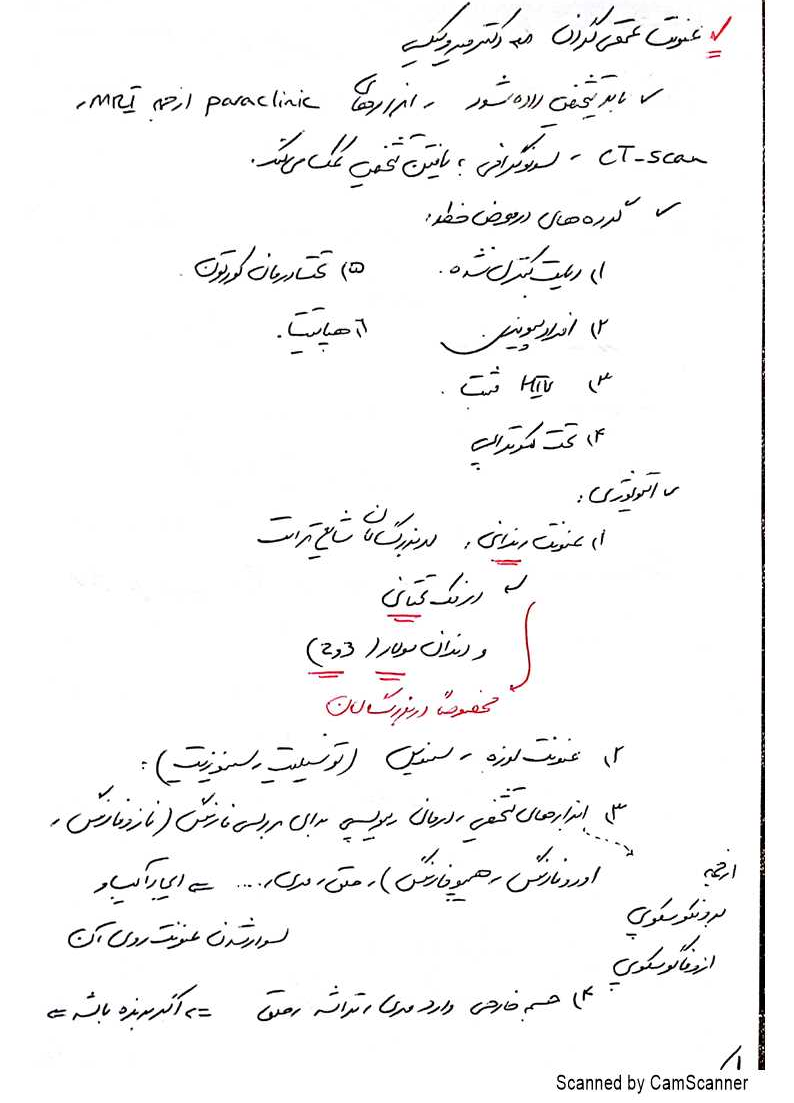 عفونت عمقی گردن دکتر میرویسی
باید تشخیص داده شود ، ابزارهای paraclinic از جمله MRI ،
CT-Scan ، سونوگرافی به یافتن تشخیص کمک می‌کند.
گروه های در معرض خطر:
۱) دیابت کنترل نشده. ۵) تحت درمان کورتون.
۲) افراد پیوندی ۶) هپاتیت.
۳) HIV مثبت.
۴) تحت کموتراپی
اتیولوژی:
۱) عفونت دندانی: در بزرگسالان شایع تر است
در فک تحتانی
و دندان مولار (2و3)
مخصوصاً در بزرگسالان
۲) عفونت لوزه ، سینوس (تونسیلیت ، سینوزیت):
۳) ابزارهای تشخیصی ، درمانی برای بررسی فارنکس (نازوفارنکس ،
اوروفارنکس ، هیپوفارنکس) ، حلق ، مری ، .... ایجاد آسیب و
سوار شدن عفونت روی آن
از جمله
برونکوسکوپی
ازوفاگوسکوپی
۴) جسم خارجی وارد مری ، تراشه ، حلق اگر برنده باشد
۱/
Scanned by CamScanner